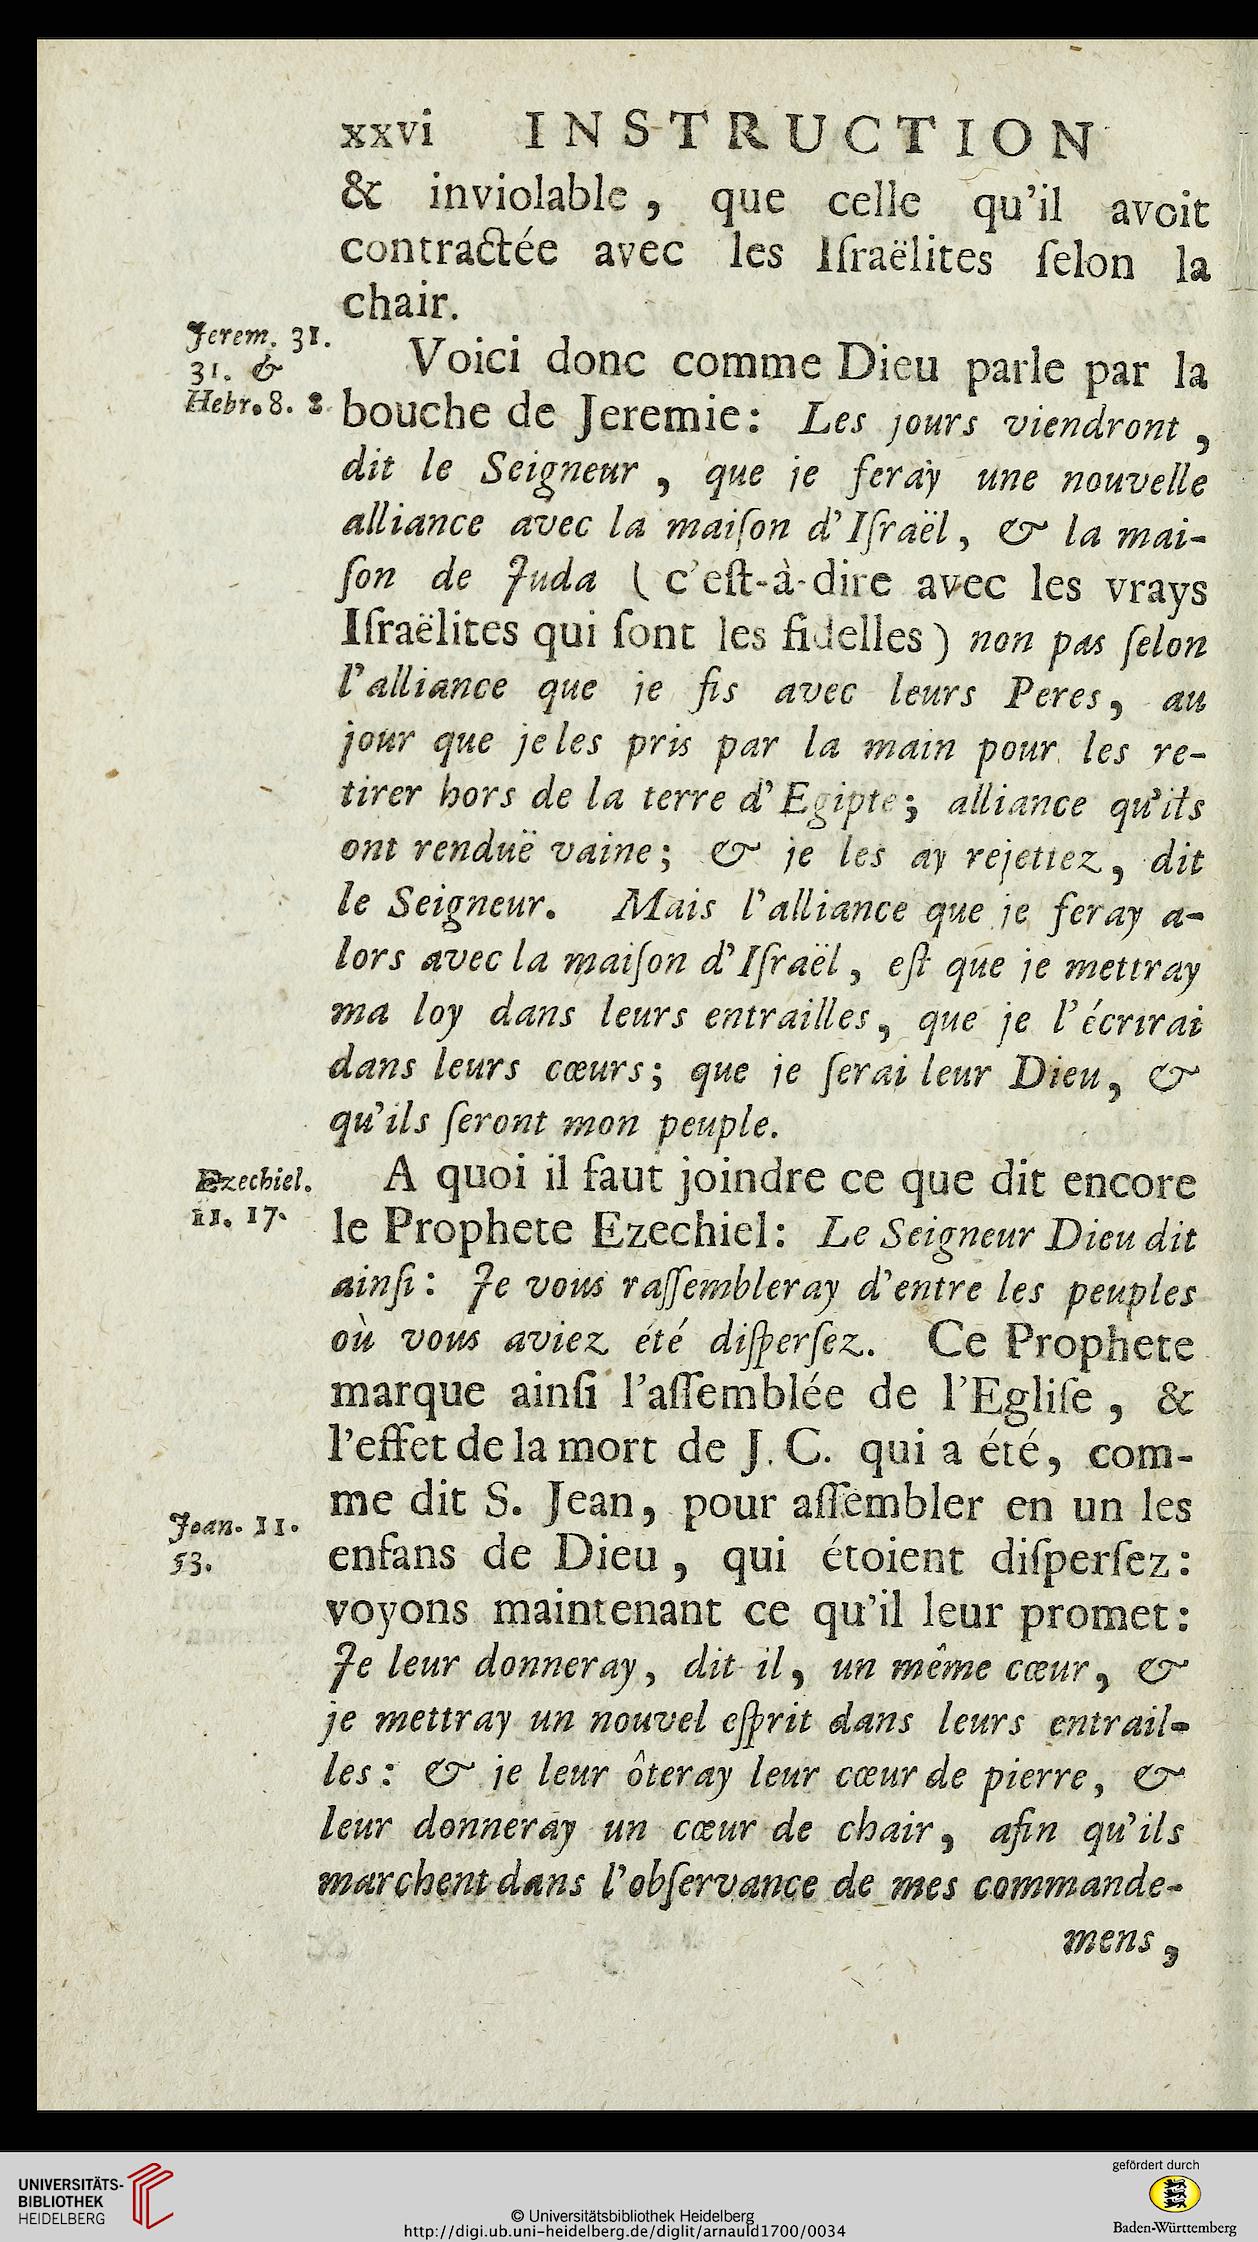 xxvi INSTRUCTION
& inviolable, que celle qu'il avoit
contractée avec les Iſraëlites ſelon la
chair.
Jerem. 31.
31. &
Hebr. 8. 8.
Voici donc comme Dieu parle par la
bouche de Jeremie: Les jours viendront,
dit le Seigneur, que je feray une nouvelle
alliance avec la maiſon d'Iſraël, & la mai-
ſon de Juda (c'eſt-à-dire avec les vrays
Iſraëlites qui ſont les fidelles) non pas ſelon
l'alliance que je fis avec leurs Peres, au
jour que je les pris par la main pour les re-
tirer hors de la terre d'Egipte; alliance qu'ils
ont renduë vaine; & je les ay rejettez, dit
le Seigneur. Mais l'alliance que je feray a-
lors avec la maiſon d'Iſraël, eſt que je mettray
ma loy dans leurs entrailles, que je l'écrirai
dans leurs cœurs; que je ſerai leur Dieu, &
qu'ils ſeront mon peuple.
Ezechiel.
11. 17.
A quoi il faut joindre ce que dit encore
le Prophete Ezechiel: Le Seigneur Dieu dit
ainſi: Je vous raſſembleray d'entre les peuples
où vous aviez été diſperſez. Ce Prophete
marque ainſi l'aſſemblée de l'Egliſe, &
l'effet de la mort de J. C. qui a été, com-
me dit S. Jean, pour aſſembler en un les
Joan. 11.
53.
enfans de Dieu, qui étoient diſperſez:
voyons maintenant ce qu'il leur promet:
Je leur donneray, dit il, un même cœur, &
je mettray un nouvel eſprit dans leurs entrail-
les: & je leur ôteray leur cœur de pierre, &
leur donneray un cœur de chair, afin qu'ils
marchent dans l'obſervance de mes commande-
mens,
UNIVERSITÄTS-
BIBLIOTHEK
HEIDELBERG
© Universitätsbibliothek Heidelberg
http://digi.ub.uni-heidelberg.de/diglit/arnauld1700/0034
gefördert durch
Baden-Württemberg